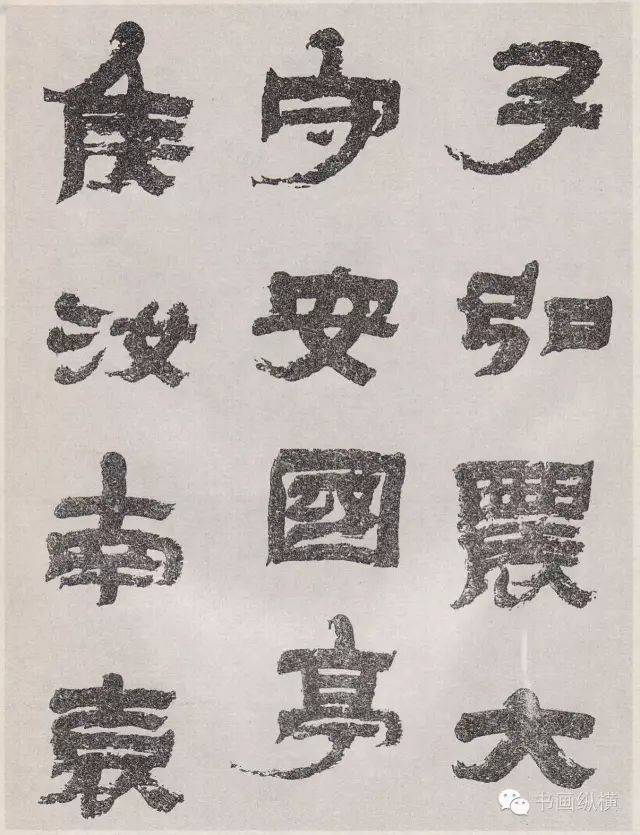 子弘農大
守安國亭
侯汝南袁
书画纵横